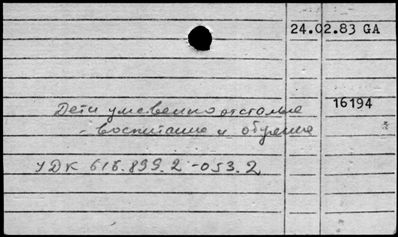 24.02.83 GA
16194
Дети умственно отсталые
- воспитание и обучение
УДК 616.899.2-053.2